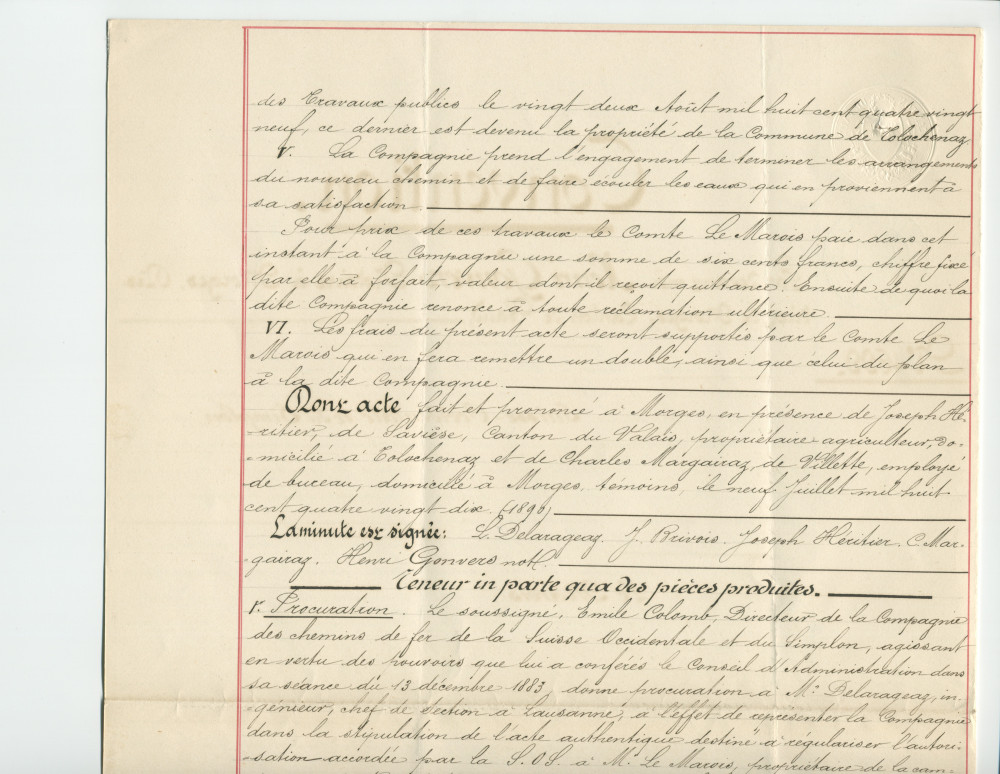 des Travaux publics le vingt deux Août mil huit cent quatre vingt
neuf, ce dernier est devenu la propriété de la Commune de Tolochenaz
V. La Compagnie prend l'engagement de terminer les arrangements
du nouveau chemin et de faire écouler les eaux qui en proviennent à
sa satisfaction
Pour prix de ces travaux le Comte Le Marois paie dans cet
instant à la Compagnie une somme de six cents francs, chiffre fixé
par elle à forfait, valeur dont il reçoit quittance. Ensuite de quoi la
dite Compagnie renonce à toute réclamation ultérieure.
VI. Les frais du présent acte seront supportés par le Comte Le
Marois qui en fera remettre un double, ainsi que celui du plan
à la dite Compagnie.
Dont acte, fait et prononcé à Morges, en présence de Joseph Hé-
-ritier, de Savièse, Canton du Valais, propriétaire agriculteur, do-
-micilié à Tolochenaz et de Charles Margairaz, de Villette, employé
de bureau, domicilié à Morges, témoins, le neuf Juillet mil huit
cent quatre vingt dix. (1890)
La minute est signée: L. Delarageaz. J. Brivois. Joseph Heritier. C. Mar-
gairaz. Henri Gonvers not.
Teneur in parte qua des pièces produites.
1º. Procuration. Le soussigné, Emile Colomb, Directeur de la Compagnie
des chemins de fer de la Suisse Occidentale et du Simplon, agissant
en vertu des pouvoirs que lui a conférés le Conseil d'Administration dans
sa séance du 13 décembre 1883, donne procuration à Mr. Delarageaz, in-
-génieur, chef de section à Lausanne, à l'effet de représenter la Compagnie
dans la stipulation de l'acte authentique destiné à régulariser l'autori-
-sation accordée par la S.O.S. à M. Le Marois, propriétaire de la cam-